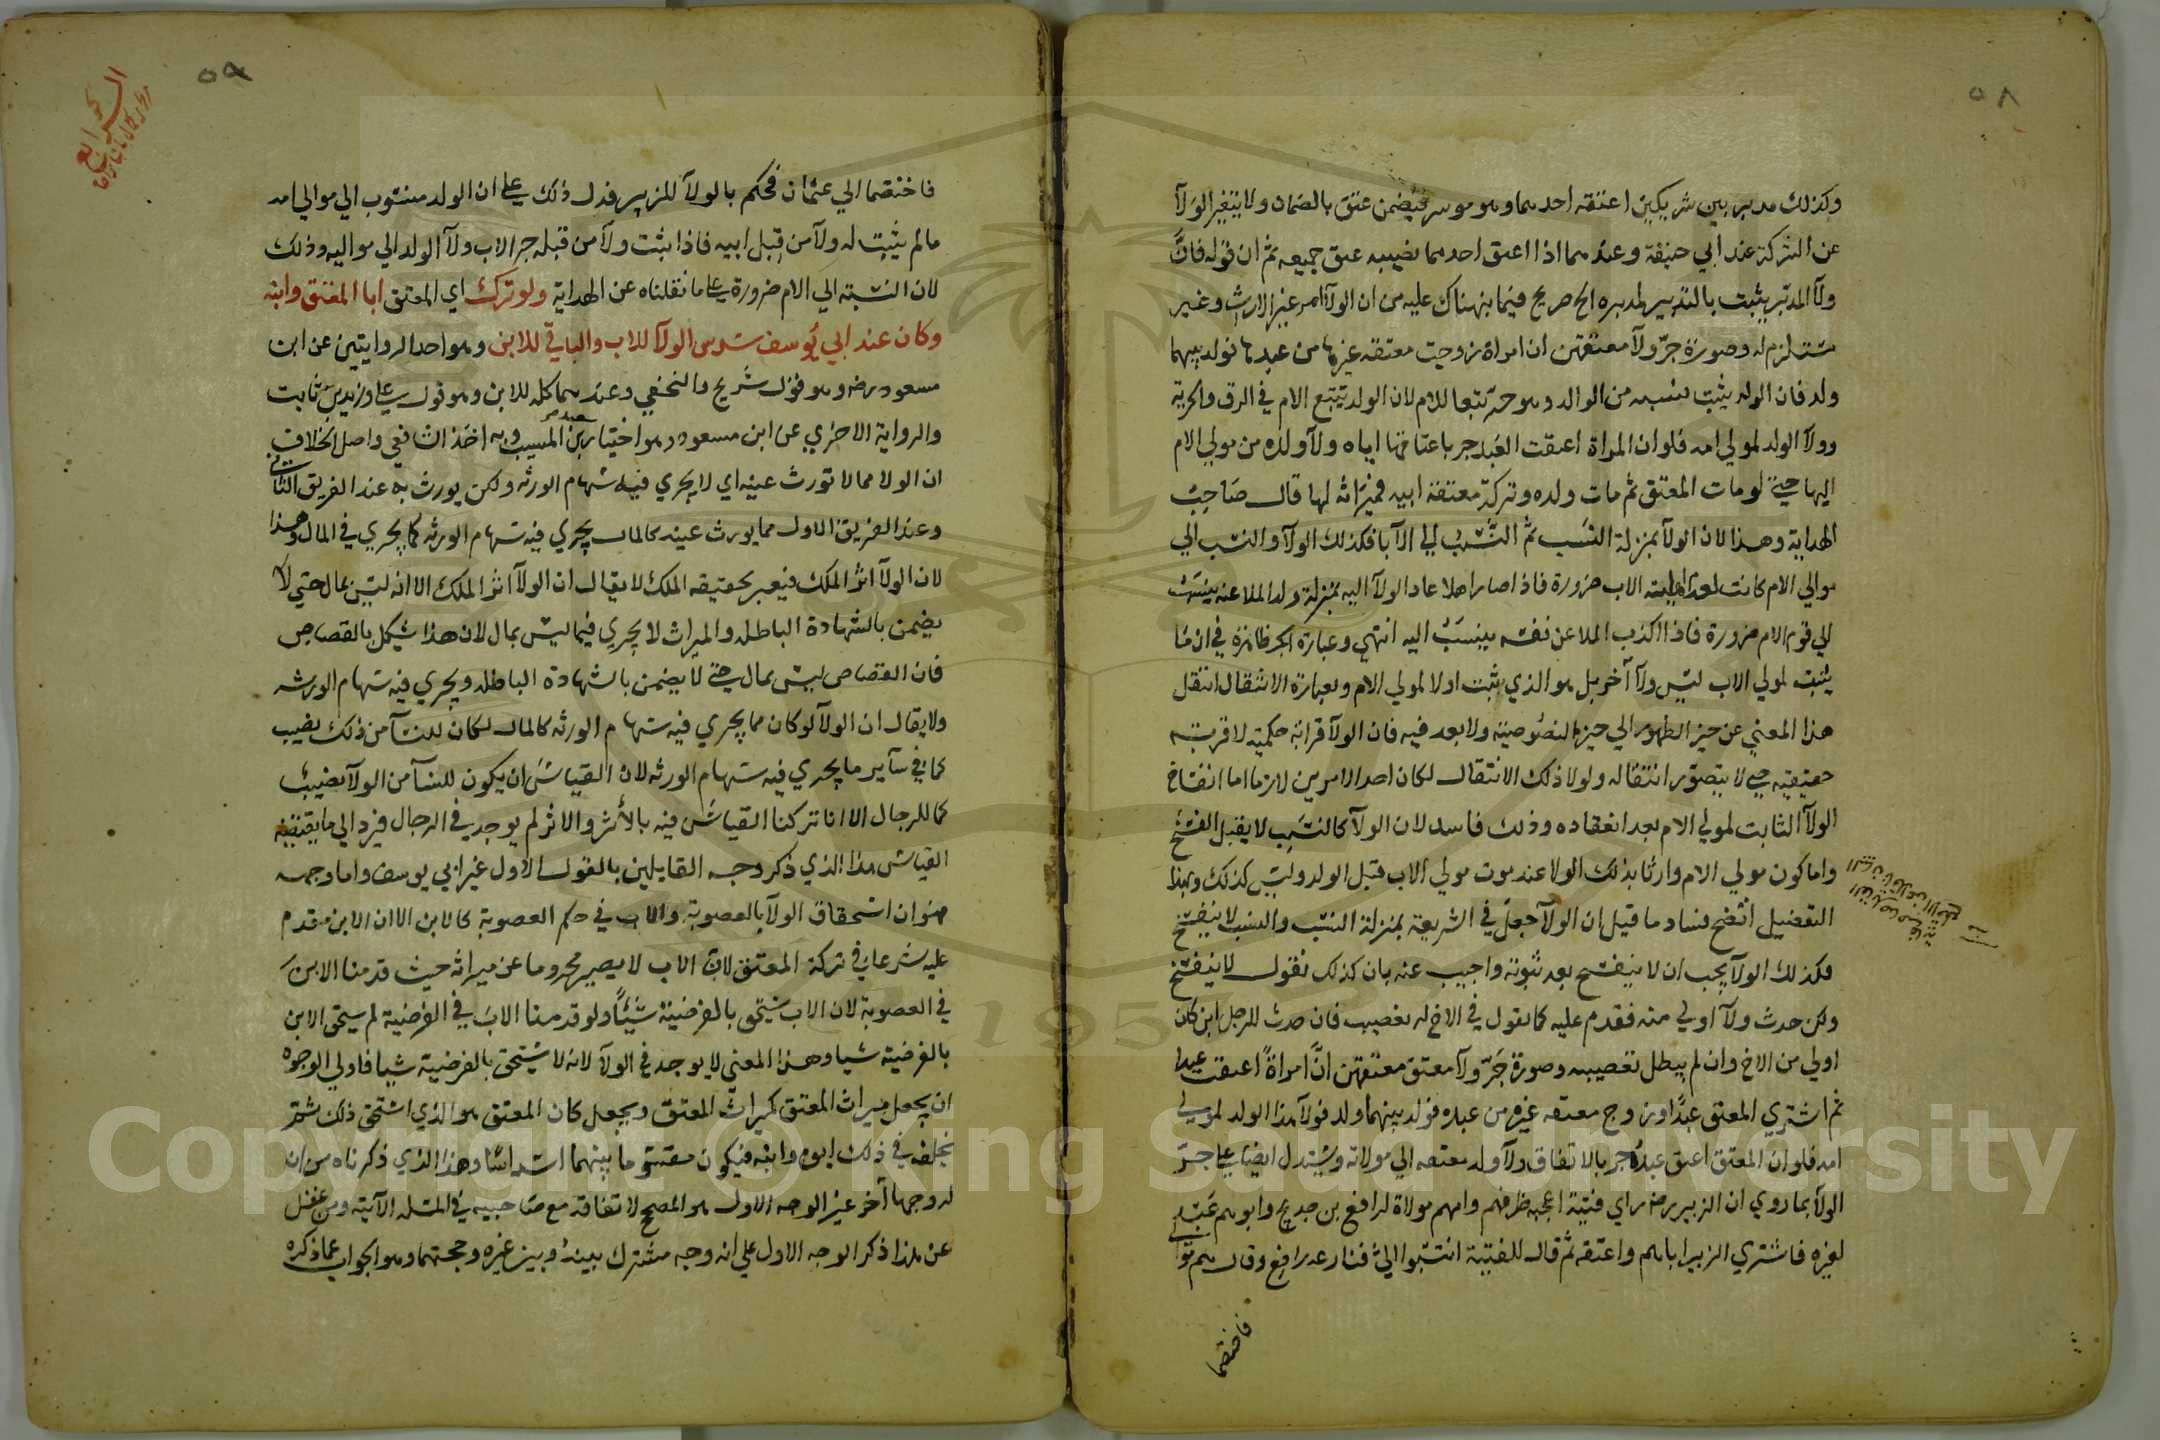 ٥٨
وكذلك مدبر بين شريكين اعتقه احدهما وهو موسر فيضمن عتق بالضمان ولا يتغير الولآ
عن الشركة عند ابي حنيفة وعندهما اذا اعتق احدهما نصيبه عتق جميعه ثم ان قوله فان
ولآ المدبر يثبت بالتدبير لمدبره الخ صريح فيما نبهناك عليه من ان الولآ امر غير الارث وغير
مستلزم له وصورة جر ولآ معتقهن ان امراة زوجت معتقه غيرها من عبدها فولد بينهما
ولد فان الولد يثبت نسبه من الوالد وهو حر تبعا للام لان الولد يتبع الام في الرق والحرية
وولآ الولد لمولي امه فلو ان المراة اعتقت العبد جر باعتاقها اياه ولآ ولده من مولي الام
اليها حتى لو مات المعتق ثم مات ولده وتركة معتقة ابيه فميراثه لها قال صاحب
الهداية وهذا لان الولآ بمنزلة النسب ثم النسب الي الآبا فكذلك الولآ والنسب الي
موالي الام كانت لعدم اهلية الاب ضرورة فاذا صار اهلا عاد الولآ اليه بمنزلة ولد الملاعنه ينسب
الي قوم الام ضرورة فاذا اكذب الملاعن نفسه ينسب اليه انتهي وعبارة الجر ظاهرة في ان ما
يثبت لمولي الاب ليس ولآ آخر بل هو الذي يثبت اولا لمولي الام وبعبارة الانتقال انتقل
هذا المعني عن حيز الظهور الي حيز النصوصية ولا بعد فيه فان الولآ قرابة حكمية لا قرابة
حقيقية حتى لا يتصور انتقاله ولولا ذلك الانتقال لكان احد الامرين لازما اما انفساخ
الولآ الثابت لمولي الام بعد انعقاده وذلك فاسد لان الولآ كالنسب لا يقبل الفسخ
واما كون مولي الام وارثا بذلك الولا عند موت مولي الاب قبل الولد وليس كذلك وبهذا
التفضيل اتضح فساد ما قيل ان الولآ جعل في الشريعة بمنزلة النسب والنسب لا ينفسخ
فكذلك الولآ يجب ان لا ينفسخ بعد ثبوته واجيب عنه بان كذلك نقول لا ينفسخ
ولكن حدث ولآ اولي منه فقدم عليه كما نقول في الاخ له تعصيب فان حدث للرجل ابن كان
اولي من الاخ وان لم يبطل تعصيبه وصورة جر ولآ معتق معتقهن ان امراة اعتقت عبدا
ثم اشتري المعتق عبدا وزوج معتقه غيره من عبده فولد بينهما ولد فولآ هذا الولد لمولي
امه فلو ان المعتق اعتق عبده جر بالاتفاق ولآ ولد معتقه الي مولاته ويستدل ايضا علي جر
الولآ بما روي ان الزبير رضه راي فتية اعجبه ظرفهم وامهم مولاة لرافع بن خديج وابوهم عبد
لغيره فاشتري الزبير اباهم واعتقه ثم قال للفتية انتسبوا الي فنازعه رافع وقال هم موالي
فاختصما
٥٩
فاختصما الي عثمان فحكم بالولآ للزبير فدل ذلك علي ان الولد منسوب الي موالي امه
مالم يثبت له ولآ من قبل ابيه فاذا ثبت ولآ من قبله جر الاب ولآ الولد الي مواليه وذلك
لان النسبة الي الام ضرورة علي ما نقلناه عن الهداية ولو ترك اي المعتق ابا المعتق وابنه
وكان عند ابي يوسف سدس الولآ للاب والباقي للابن وهو احد الروايتين عن ابن
مسعود رضه وهو قول شريح والنخعي وعندهما كله للابن وهو قول علي وزيد بن ثابت
والرواية الاخري عن ابن مسعود وهو اختيار سعيد بن المسيب وبه اخذ الشافعي واصل الخلاف
ان الولا مما لا تورث عينه اي لا يجري فيه سهام الورثه ولكن يورث به عند الفريق الثاني
وعند الفريق الاول مما يورث عينه كالمال يجري فيه سهام الورثه كما يجري في المال وهذا
لان الولآ اثر الملك فيعبر بحقيقه الملك لا يقال ان الولآ اثر الملك الا انه ليس بمال حتي لا
يضمن بالشهادة الباطله والميراث لا يجري فيما ليس بمال لان هذا يشكل بالقصاص
فان القصاص ليس بمال حتى لا يضمن بالشهادة الباطله ويجري فيه سهام الورثه
ولا يقال ان الولآ لو كان مما يجري فيه سهام الورثه كالمال لكان للنسآ من ذلك نصيب
كما في سآير ما يجري فيه سهام الورثه لان القياس ان يكون للنسآ من الولآ نصيب
كما للرجال الا انا تركنا القياس فيه بالأثر والاثر لم يوجد في الرجال فيرد الي ما يقتضيه
القياس هذا الذي ذكر وجه القايلين بالقول الاول غير ابي يوسف واما وجهه
فهو ان استحقاق الولآ بالعصوبة والاب في حكم العصوبة كالابن الا ان الابن مقدم
عليه شرعا في تركة المعتق لان الاب لا يصير محروما عن ميراثه حيث قدمنا الابن
في العصوبة لان الاب يستحق بالفرضية شيئا ولو قدمنا الاب في الفرضية لم يستحق الابن
بالفرضية شيا وهذا المعني لا يوجد في الولآ لانه لا يستحق بالفرضية شيا فاولي الوجوه
ان يجعل ميراث المعتق كميراث المعتق ويجعل كان المعتق هو الذي استحق ذلك ثم
يخلفه في ذلك ابوه وابنه فيكون مقسوما بينهما اسداسا وهذا الذي ذكرناه من ان
له وجها آخر غير الوجه الاول هو المصحح لاتفاقه مع صاحبيه في المسئله الآتية ومن غفل
عن هذا ذكر الوجه الاول علي انه وجه مشترك بينه وبين غيره وحجتهما وهو الجواب عما ذكره